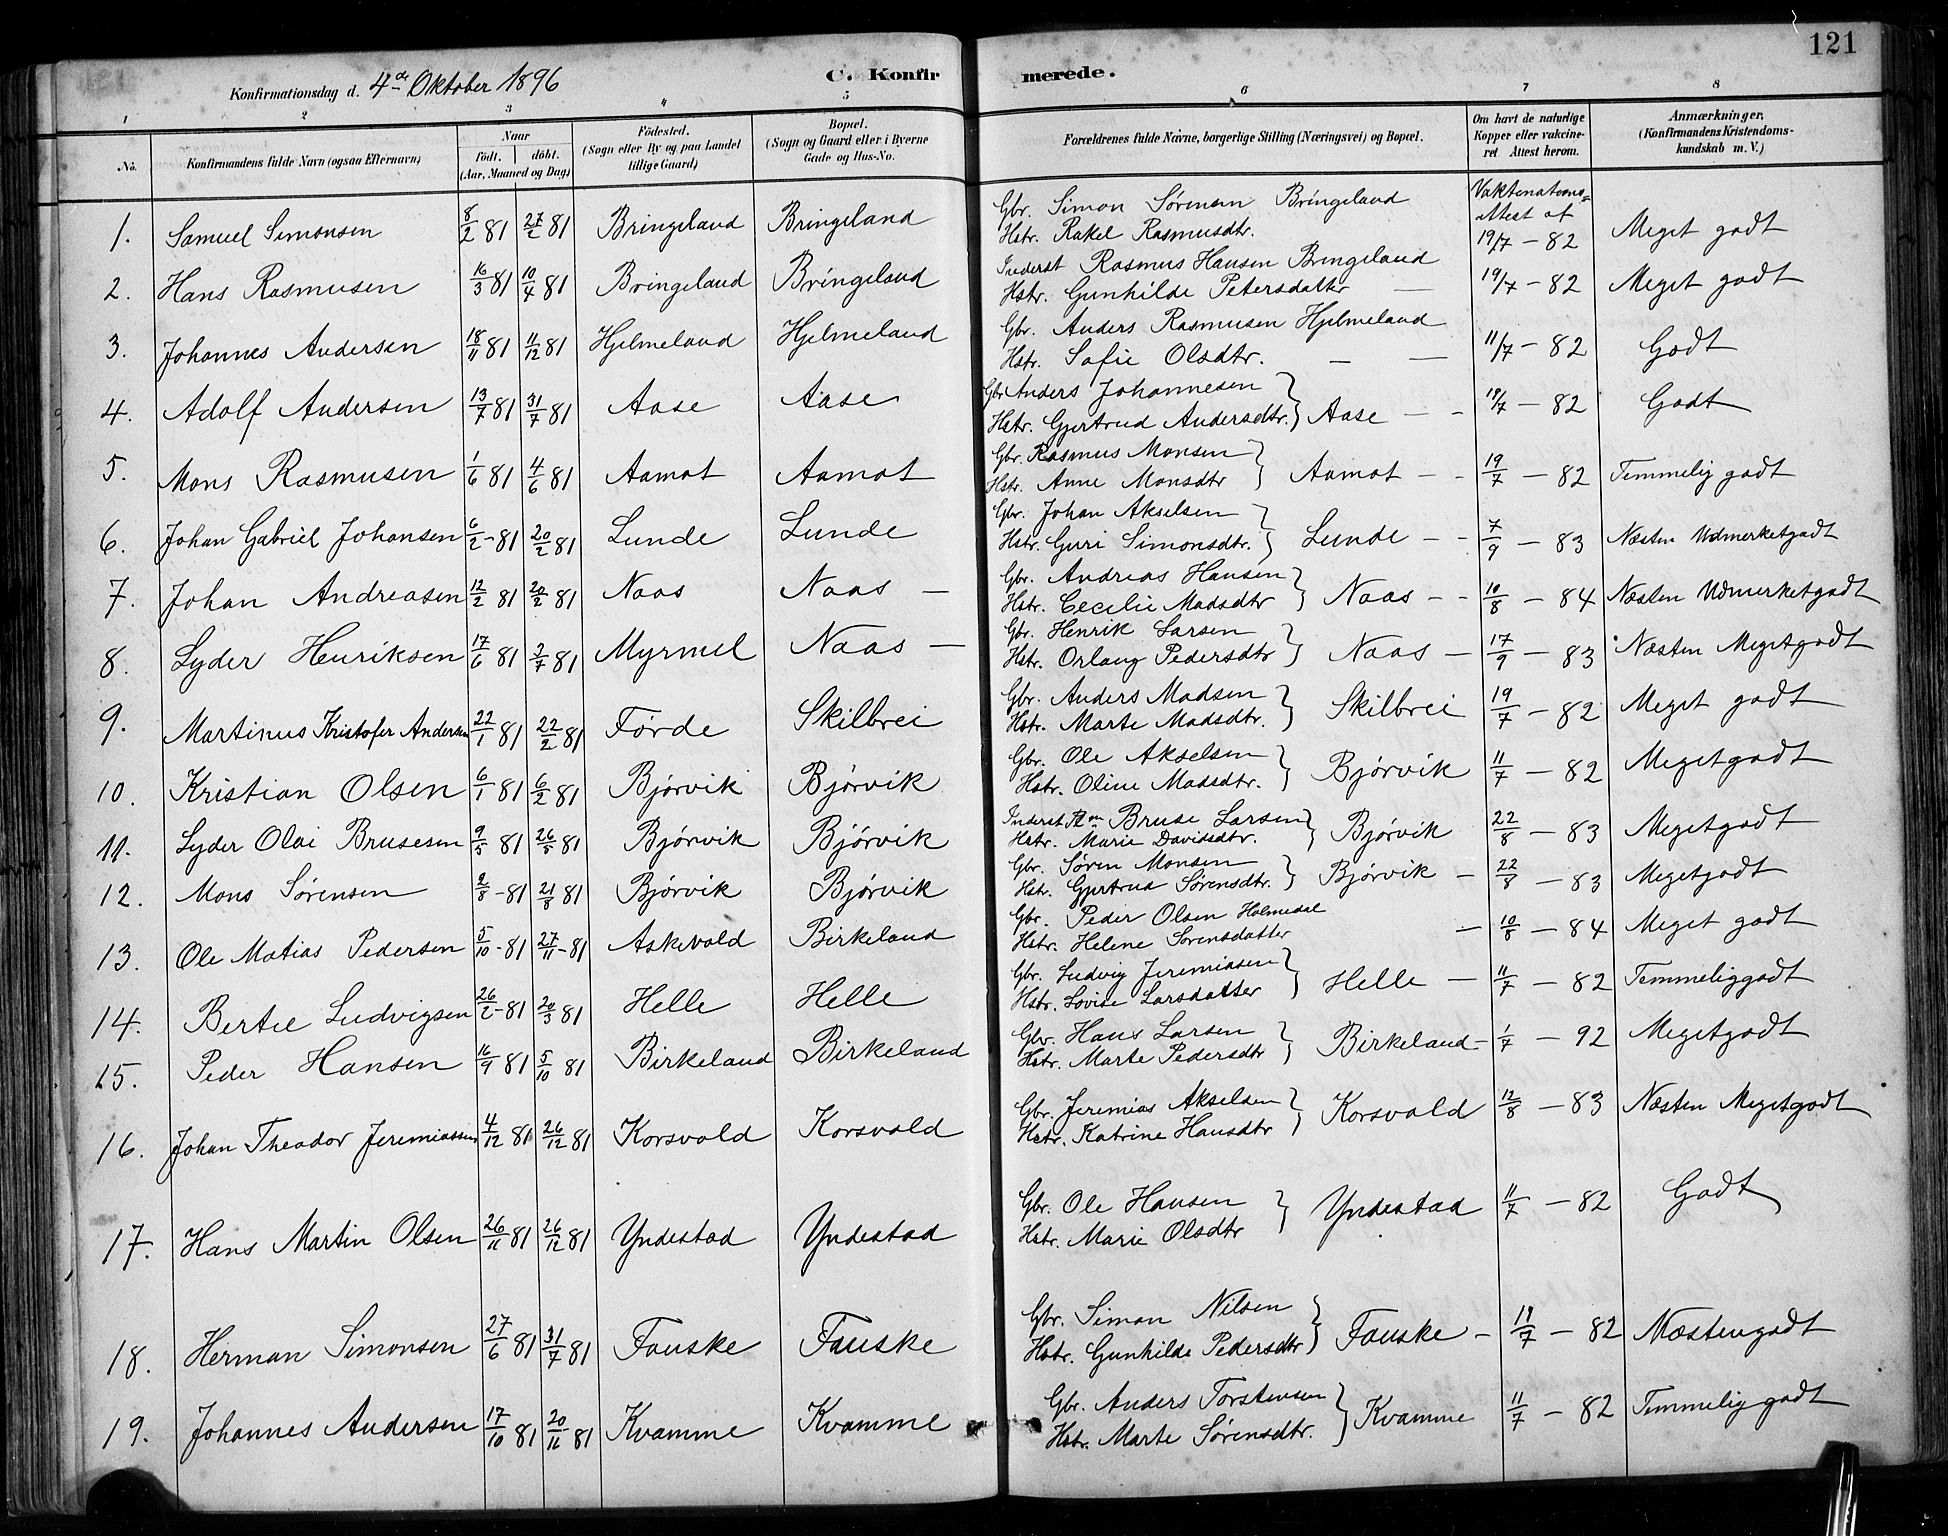 121
Konfirmationsdag d. 4de Oktober 1896
C. Konfirmerede.
1 2 3 4 5 6 7 8
No. Konfirmandens fulde Navn (ogsaa Efternavn) Naar født. døbt. (Aar, Maaned og Dag) Födested. (Sogn eller By og paa Landet tillige Gaard) Bopæl. (Sogn og Gaard eller i Byerne Gade og Hus-No. Forældrenes fulde Navne, borgerlige Stilling (Næringsvei) og Bopæl. Om havt de naturlige Kopper eller vakcineret Attest herom. Anmærkninger, (Konfirmandens Kristendomskundskab m. V.)
1. Samuel Simonsen 8/2 81 27/2 81 Bringeland Bringeland Gbr. Simon Sørensen Bringeland Vaktinations=attest af
Hstr. Rakel Rasmusdtr. 19/7 - 82 Meget godt
2. Hans Rasmusen 16/3 81 10/4 81 Bringeland Bringeland Inderst Rasmus Hansen Bringeland
Hstr. Gunhilde Petersdatter — 19/7 - 82 Meget godt
3. Johannes Andersen 18/11 81 11/12 81 Hjelmeland Hjelmeland Gbr. Anders Rasmusen Hjelmeland
Hstr. Sofie Olsdtr. — — 11/7 - 82 Godt
4. Adolf Andersen 13/7 81 31/7 81 Aase Aase Gbr Anders Johannesen
Hstr. Gjertrud Andersdtr. } Aase - - 19/7 - 82 Godt
5. Mons Rasmusen 1/6 81 4/6 81 Aamot Aamot Gbr. Rasmus Monsen
Hstr. Anne Monsdtr } Aamot - - 19/7 - 82 Temmelig godt
6. Johan Gabriel Johansen 6/2 - 81 20/2 81 Lunde Lunde Gbr. Johan Akselsen
Hstr. Guri Simonsdtr. } Lunde - - 7/9 - 83 Næsten Udmerketgodt
7. Johan Andreasen 12/2 81 20/2 81 Naas Naas — Gbr. Andreas Hansen
Hstr. Cecilie Madsdtr } Naas - - 10/8 - 84 Næsten Udmerketgodt
8. Lyder Henriksen 17/6 81 3/7 81 Myrmel Naas — Gbr. Henrik Larsen
Hstr. Orlaug Pedersdtr } Naas - 17/9 - 83 Næsten Megetgodt
9. Martinus Kristofer Andersen 22/1 81 22/2 81 Førde Skilbrei Gbr. Anders Madsen
Hstr. Marte Madsdtr. } Skilbrei 19/7 - 82 Meget godt
10. Kristian Olsen 6/1 81 6/2 81 Bjørvik Bjørvik Gbr. Ole Akselsen
Hstr. Oline Madsdtr. } Bjørvik 11/7 - 82 Megetgodt
11. Lyder Olai Brusesen 9/5 81 26/5 81 Bjørvik Bjørvik Inderst Bruse Larsen
Hstr. Marie Davidsdtr. } Bjørvik 22/8 - 83 Megetgodt
12. Mons Sørensen 2/8 - 81 21/8 81 Bjørvik Bjørvik Gbr. Søren Monsen
Hstr. Gjertrud Sørensdtr. } Bjørvik - 22/8 - 83 Megetgodt
13. Ole Matias Pedersen 5/10 - 81 27/11 - 81 Askevold Birkeland Gbr. Peder Olsen Holmedal
Hstr. Helene Sørensdatter - 10/8 - 84 Meget godt
14. Bertel Ludvigsen 26/2 - 81 20/3 81 Helle Helle Gbr. Ludvig Jeremiasen
Hstr. Lovise Larsdatter } Helle - 11/7 - 82 Temmeliggodt
15. Peder Hansen 16/9 81 5/10 81 Birkeland Birkeland Gbr. Hans Larsen
Hstr. Marte Pedersdtr } Birkeland - 1/7 - 92 Megetgodt
16. Johan Theodor Jeremiassen 4/12 81 26/12 81 Korsvold Korsvold Gbr. Jeremias Akselsen
Hstr. Katrine Hansdtr } Korsvold 12/8 - 83 Næsten Megetgodt
17. Hans Martin Olsen 26/11 81 26/12 81 Yndestad Yndestad Gbr. Ole Hansen
Hstr. Marie Olsdtr } Yndestad 11/7 - 82 Godt
18. Herman Simonsen 27/6 81 31/7 81 Fauske Fauske Gbr. Simon Nilsen
Hstr. Gunhilde Pedersdtr } Fauske - 19/7 - 82 Næstengodt
19. Johannes Andersen 17/10 81 20/11 81 Kvamme Kvamme Gbr. Anders Torstensen
Hstr. Marte Sørensdtr. } Kvamme 11/7 - 82 Temmelig godt